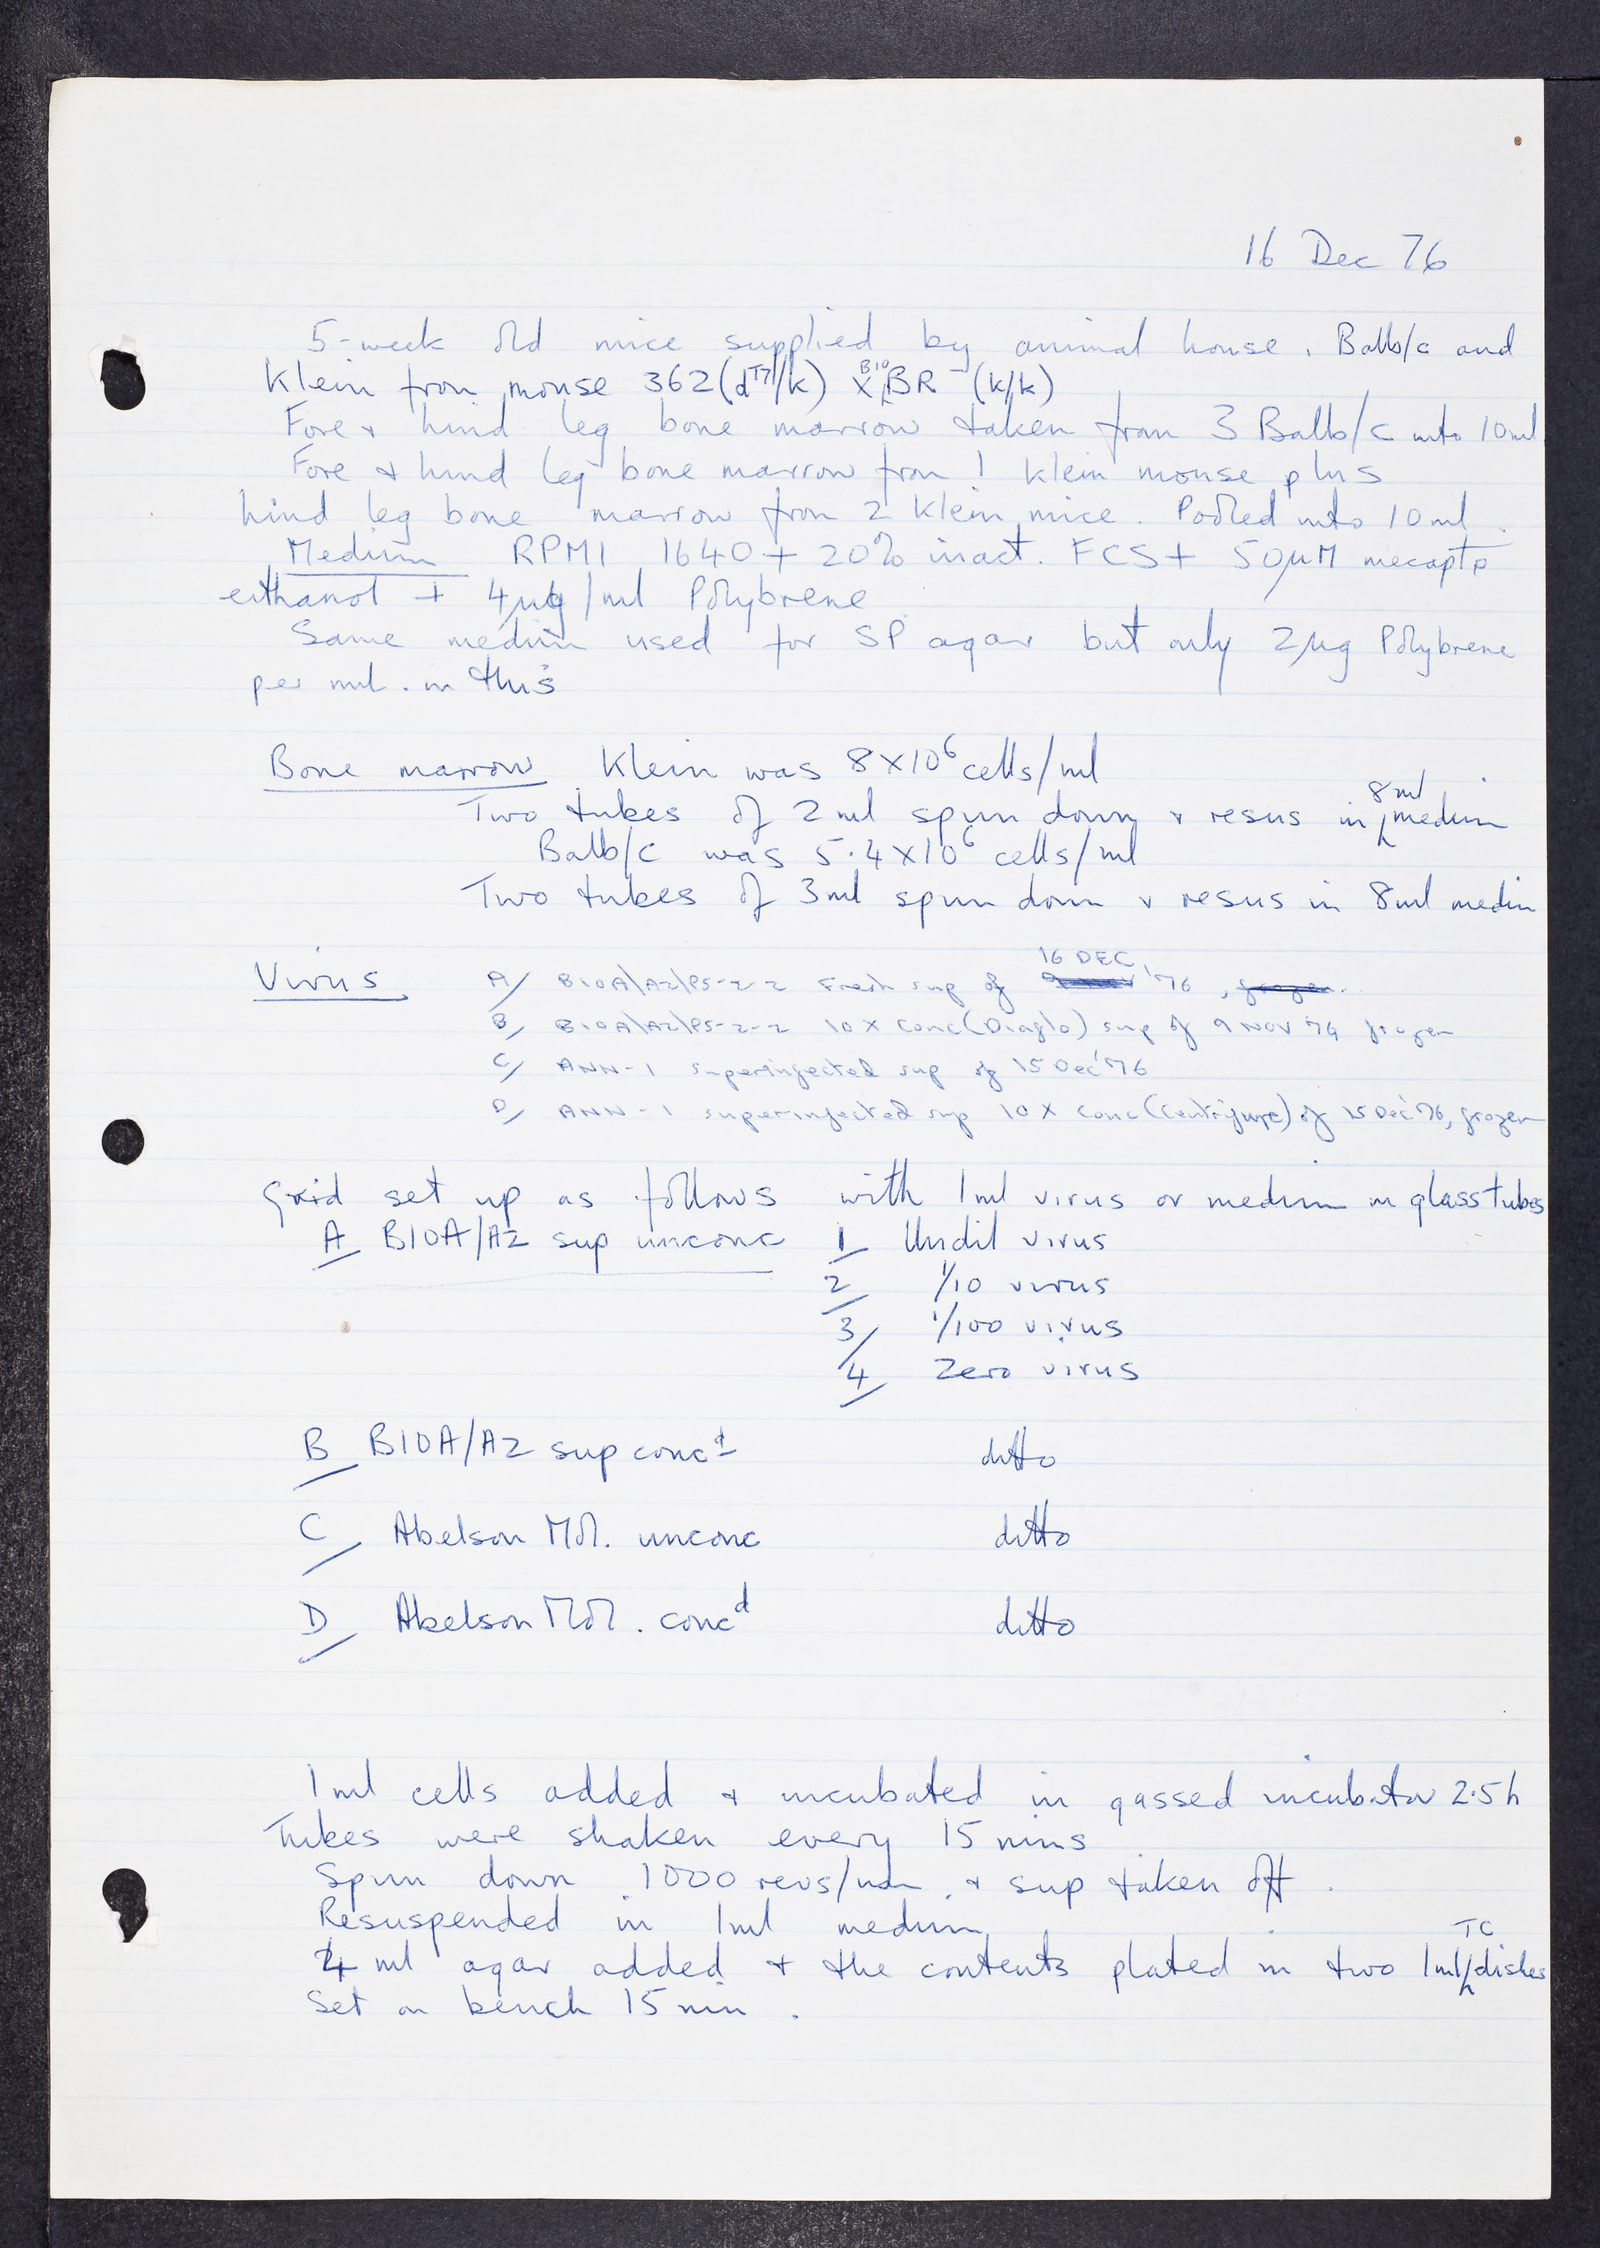 16 Dec 76
5-week old mice supplied by animal house. Balb/c and
Klein from mouse 362 (dT7/k) x B10 BR (k/k)
Fore & hind leg bone marrow taken from 3 Balb/c into 10ml
Fore & hind leg bone marrow from 1 Klein mouse plus
hind leg bone marrow from 2 Klein mice. Pooled into 10ml.
Medium RPMI 1640 + 20% inact. FCS + 50µM mecapto
eithanol + 4µg/ml Polybrene
Same medium used for SP agar but only 2µg Polybrene
per ml. in this
Bone marrow Klein was 8x10⁶ cells/ml
Two tubes of 2ml spun down & resus in 8ml medium
Balb/c was 5.4x10⁶ cells/ml
Two tubes of 3ml spun down & resus in 8ml medium
Virus A/ B10A/A2/PS-2-2 Fresh sup of 16 DEC '76,
B/ B10A/A2/PS-2-2 10x conc (Diaflo) sup of 9 NOV 76 frozen
C/ ANN-1 superinfected sup of 15 Dec '76
D/ ANN-1 superinfected sup 10x conc (centrifuge) of 15 Dec '76, frozen
Grid set up as follows with 1ml virus or medium in glass tubes
A B10A/A2 sup unconc 1 Undil virus
2 1/10 virus
3/ 1/100 virus
4 Zero virus
B B10A/A2 sup concd ditto
C Abelson Mol. unconc ditto
D Abelson Mol. concd ditto
1ml cells added & incubated in gassed incubator 2.5h
Tubes were shaken every 15 mins
Spun down 1000 revs/min & sup taken off.
Resuspended in 1ml medium
4 ml agar added & the contents plated in two 1ml TC dishes
Set on bench 15 min.